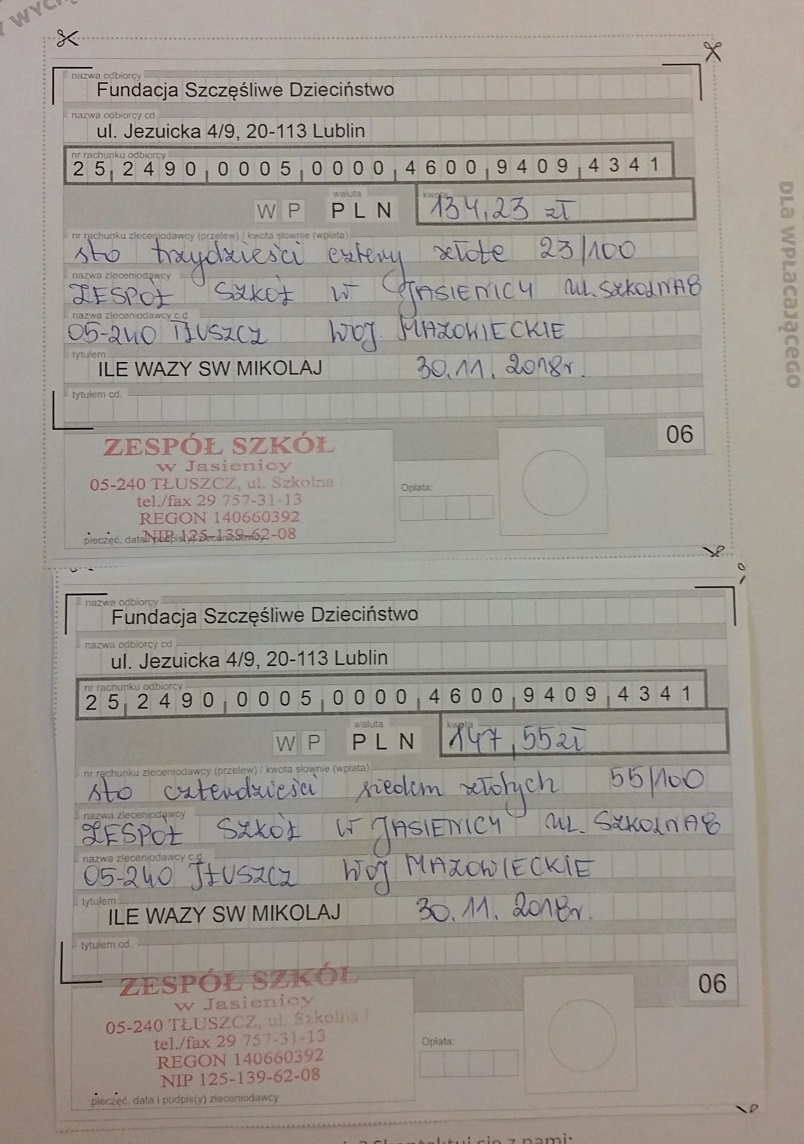 nazwa odbiorcy
Fundacja Szczęśliwe Dzieciństwo
nazwa odbiorcy cd.
ul. Jezuicka 4/9, 20-113 Lublin
nr rachunku odbiorcy
25 2490 0005 0000 4600 9409 4341
waluta kwota
W P PLN 134,23 zł
nr rachunku zleceniodawcy (przelew) / kwota słownie (wpłata)
sto trzydzieści cztery złote 23/100
nazwa zleceniodawcy
ZESPÓŁ SZKÓŁ W JASIENICY UL. SZKOLNA 8
nazwa zleceniodawcy c.d.
05-240 TŁUSZCZ WOJ. MAZOWIECKIE
tytułem
ILE WAZY SW MIKOLAJ 30.11.2018r.
tytułem cd.
06
ZESPÓŁ SZKÓŁ
w Jasienicy
05-240 TŁUSZCZ, ul. Szkolna
tel./fax 29 757-31-13
REGON 140660392
NIP 125-139-62-08
pieczęć, data
Opłata:
DLA WPŁACAJĄCEGO
nazwa odbiorcy
Fundacja Szczęśliwe Dzieciństwo
nazwa odbiorcy cd.
ul. Jezuicka 4/9, 20-113 Lublin
nr rachunku odbiorcy
25 2490 0005 0000 4600 9409 4341
waluta kwota
W P PLN 147,55 zł
nr rachunku zleceniodawcy (przelew) / kwota słownie (wpłata)
sto czterdzieści siedem złotych 55/100
nazwa zleceniodawcy
ZESPÓŁ SZKÓŁ W JASIENICY UL. SZKOLNA 8
nazwa zleceniodawcy c.d.
05-240 TŁUSZCZ WOJ MAZOWIECKIE
tytułem
ILE WAZY SW MIKOLAJ 30.11.2018r.
tytułem cd.
06
ZESPÓŁ SZKÓŁ
w Jasienicy
05-240 TŁUSZCZ, ul. Szkolna
tel./fax 29 757-31-13
REGON 140660392
NIP 125-139-62-08
pieczęć, data i podpis(y) zleceniodawcy
Opłata:
się z nami: